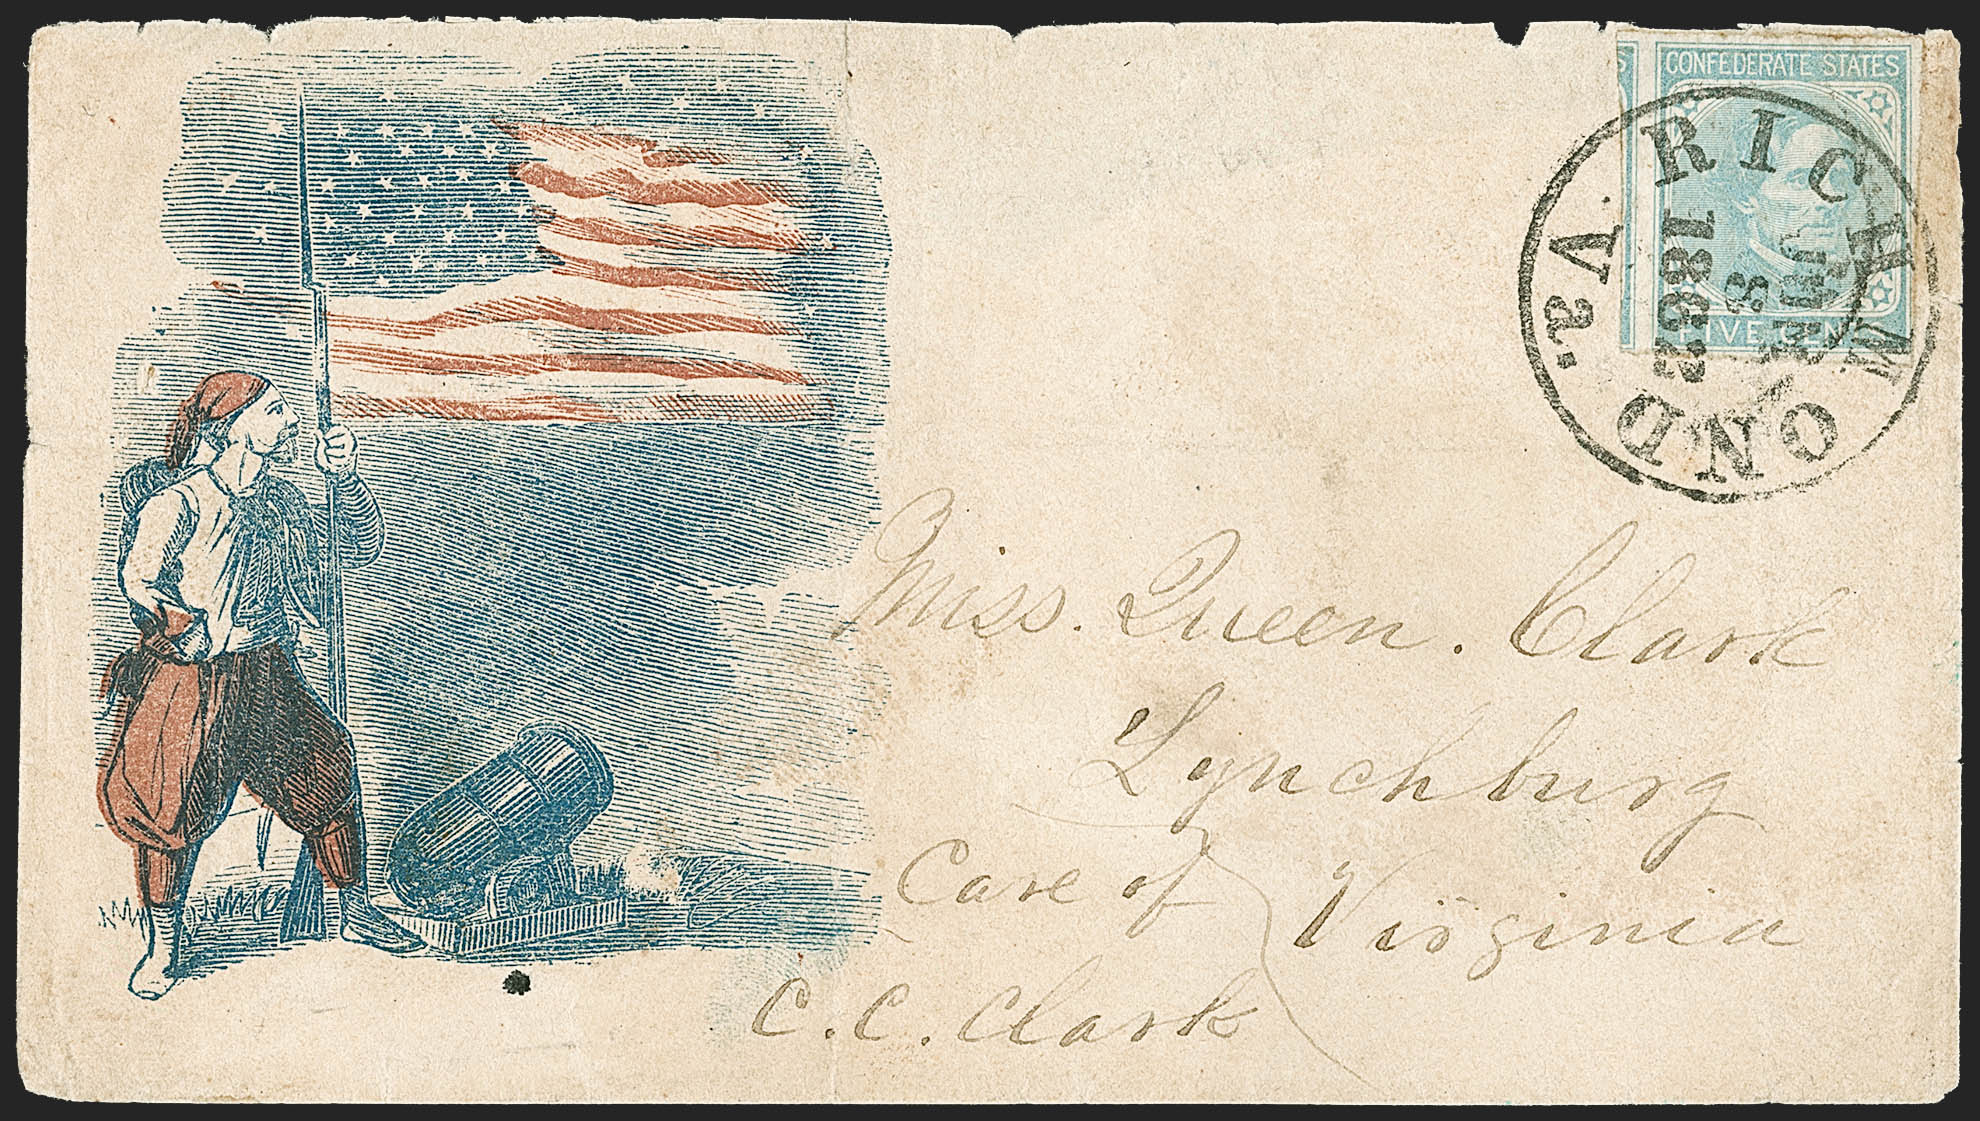 CONFEDERATE STATES
FIVE CEN
RICHMOND Va.
8
1862
Miss. Queen. Clark
Lynchburg
Virginia
Care of
C. C. Clark